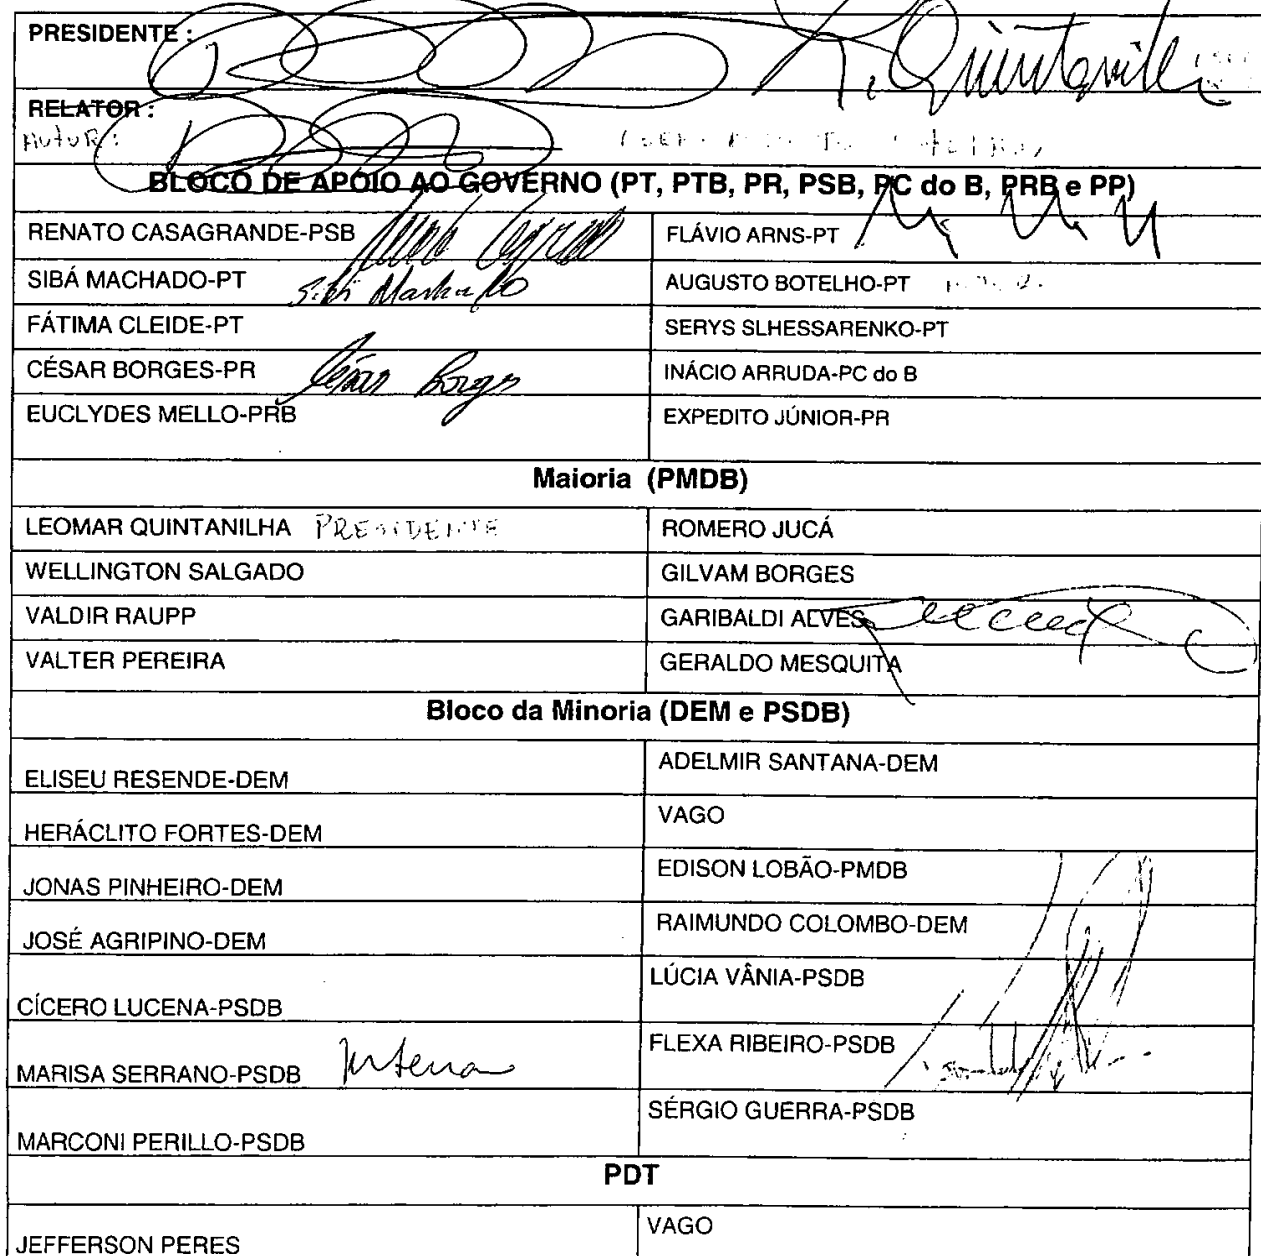 PRESIDENTE :
RELATOR :
AUTOR :
BLOCO DE APOIO AO GOVERNO (PT, PTB, PR, PSB, PC do B, PRB e PP)
RENATO CASAGRANDE-PSB
FLÁVIO ARNS-PT
SIBÁ MACHADO-PT Sibá Machado
AUGUSTO BOTELHO-PT
FÁTIMA CLEIDE-PT
SERYS SLHESSARENKO-PT
CÉSAR BORGES-PR César Borges
INÁCIO ARRUDA-PC do B
EUCLYDES MELLO-PRB
EXPEDITO JÚNIOR-PR
Maioria (PMDB)
LEOMAR QUINTANILHA PRESIDENTE
ROMERO JUCÁ
WELLINGTON SALGADO
GILVAM BORGES
VALDIR RAUPP
GARIBALDI ALVES
VALTER PEREIRA
GERALDO MESQUITA
Bloco da Minoria (DEM e PSDB)
ELISEU RESENDE-DEM
ADELMIR SANTANA-DEM
HERÁCLITO FORTES-DEM
VAGO
JONAS PINHEIRO-DEM
EDISON LOBÃO-PMDB
JOSÉ AGRIPINO-DEM
RAIMUNDO COLOMBO-DEM
CÍCERO LUCENA-PSDB
LÚCIA VÂNIA-PSDB
MARISA SERRANO-PSDB
FLEXA RIBEIRO-PSDB
MARCONI PERILLO-PSDB
SÉRGIO GUERRA-PSDB
PDT
JEFFERSON PERES
VAGO